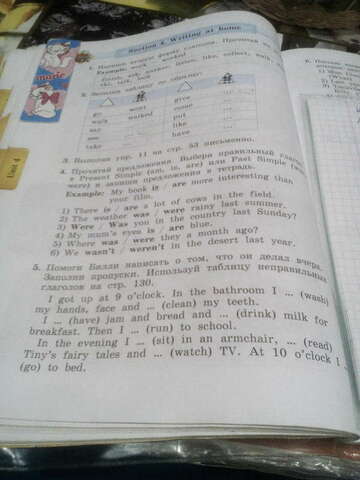 music
Unit 4
Section 4. Writing at home
1. Напиши вторую форму глаголов. Прочитай
Example: walk – walked
finish, ask, answer, listen, like, collect, walk,
ski, talk, look
2. Заполни таблицу по образцу:
go went give
walk walked come
say put
see like
take have
3. Выполни упр. 11 на стр. 53 письменно.
4. Прочитай предложения. Выбери правильный глагол
в Present Simple (am, is, are) или Past Simple (was,
were) и запиши предложения в тетрадь.
Example: My book is / are more interesting than
your film.
1) There is / are a lot of cows in the field.
2) The weather was / were rainy last summer.
3) Were / Was you in the country last Sunday?
4) My mum's eyes is / are blue.
5) Where was / were they a month ago?
6) We wasn't / weren't in the desert last year.
5. Помоги Билли написать о том, что он делал вчера.
Заполни пропуски. Используй таблицу неправильных
глаголов на стр. 130.
I got up at 9 o'clock. In the bathroom I ... (wash)
my hands, face and ... (clean) my teeth.
I ... (have) jam and bread and ... (drink) milk for
breakfast. Then I ... (run) to school.
In the evening I ... (sit) in an armchair, ... (read)
Tiny's fairy tales and ... (watch) TV. At 10 o'clock I
(go) to bed.